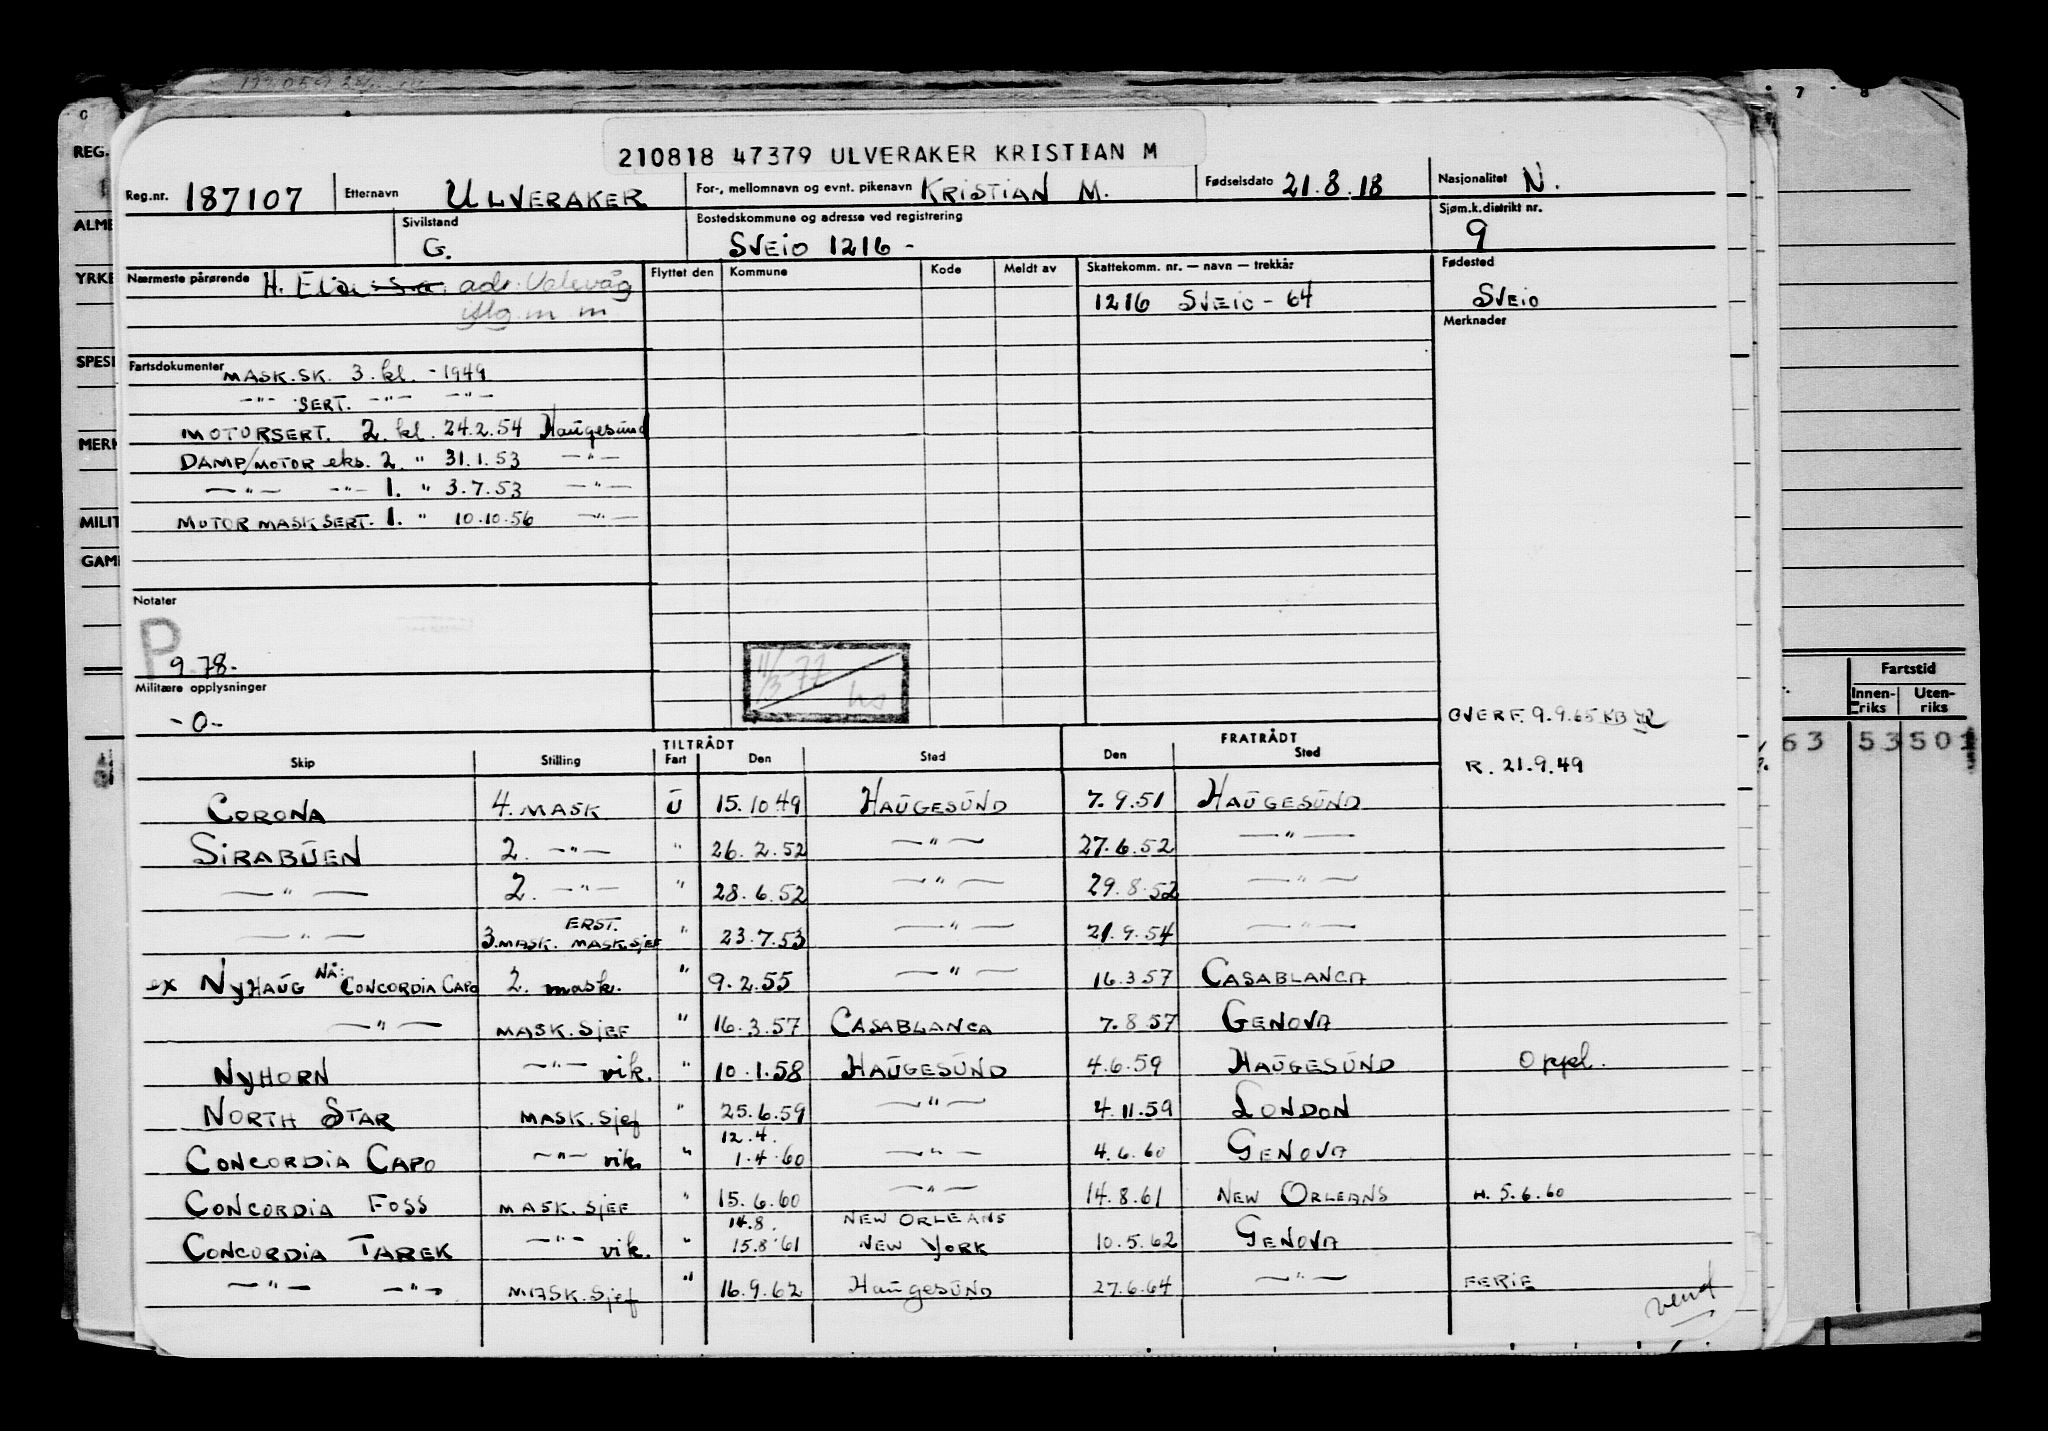 210818 47379 ULVERAKER KRISTIAN M
Reg.nr. 187107 Etternavn ULVERAKER For-, mellomnavn og evnt. pikenavn KRISTIAN M. Fødselsdato 21.8.18 Nasjonalitet N.
Sivilstand G. Bostedskommune og adresse ved registrering SVEIO 1216 - Sjøm.k.distrikt nr. 9
Nærmeste pårørende H. adr. Valevåg Flyttet den Kommune Kode Meldt av Skattekomm. nr. — navn — trekkår Fødested
1216 SVEIO - 64 SVEIO
Merknader
Fartsdokumenter MASK.SK. 3. kl. - 1949
—"— SERT. —"— —"—
MOTORSERT. 2. kl. 24.2.54 Haugesund
DAMP/MOTOR eks. 2. " 31.1.53 —"—
—"— —"— 1. " 3.7.53 —"—
MOTOR MASKSERT. 1. " 10.10.56 —"—
Notater
P
9.78.-
11/3 77
Militære opplysninger
-0-
OVERF. 9.9.65 KB
R. 21.9.49
TILTRÅDT FRATRÅDT
Skip Stilling Fart Den Sted Den Sted
CORONA 4. MASK U 15.10.49 HAUGESUND 7.9.51 HAUGESUND
SIRABUEN 2. —"— " 26.2.52 —"— 27.6.52 —"—
—"— 2. —"— " 28.6.52 —"— 29.8.52 —"—
—"— 3.MASK. ERST. MASK.SJEF " 23.7.53 —"— 21.9.54 —"—
ex NYHAUG NÅ: CONCORDIA CAPO 2. mask. " 9.2.55 —"— 16.3.57 CASABLANCA
—"— MASK.SJEF " 16.3.57 CASABLANCA 7.8.57 GENOVA
NYHORN —"— vik. " 10.1.58 HAUGESUND 4.6.59 HAUGESUND Oppl.
NORTH STAR MASK.Sjef " 25.6.59 —"— 4.11.59 LONDON
12.4.
CONCORDIA CAPO —"— vik. " 1.4.60 —"— 4.6.60 GENOVA
CONCORDIA FOSS MASK.SJEF " 15.6.60 —"— 14.8.61 NEW ORLEANS H. 5.6.60
14.8. NEW ORLEANS
CONCORDIA TAREK —"— vik. " 15.8.61 NEW YORK 10.5.62 GENOVA
—"— —"— MASK.Sjef " 16.9.62 HAUGESUND 27.6.64 —"— FERIE
vend
REG.
ALME
YRKE
SPESI
MERK
MILIT
GAM
7 8
Fartstid
Innen-riks Uten-riks
63 53 501